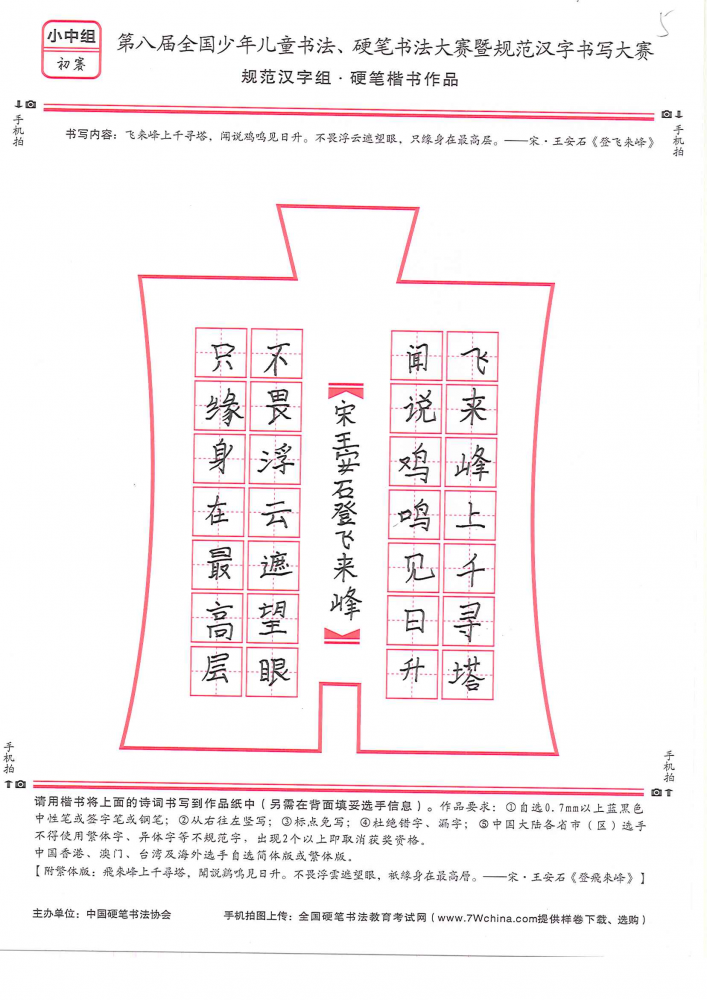 小中组
初赛
5
第八届全国少年儿童书法、硬笔书法大赛暨规范汉字书写大赛
规范汉字组·硬笔楷书作品
手机拍
手机拍
书写内容：飞来峰上千寻塔，闻说鸡鸣见日升。不畏浮云遮望眼，只缘身在最高层。——宋·王安石《登飞来峰》
飞来峰上千寻塔
闻说鸡鸣见日升
宋王安石登飞来峰
不畏浮云遮望眼
只缘身在最高层
手机拍
手机拍
请用楷书将上面的诗词书写到作品纸中（另需在背面填妥选手信息）。作品要求：①自选0.7mm以上蓝黑色
中性笔或签字笔或钢笔；②从右往左竖写；③标点免写；④杜绝错字、漏字；⑤中国大陆各省市（区）选手
不得使用繁体字、异体字等不规范字，出现2个以上即取消获奖资格。
中国香港、澳门、台湾及海外选手自选简体版或繁体版。
【附繁体版：飛來峰上千尋塔，聞說鷄鳴見日升。不畏浮雲遮望眼，祇緣身在最高層。——宋·王安石《登飛來峰》】
主办单位：中国硬笔书法协会
手机拍图上传：全国硬笔书法教育考试网（www.7Wchina.com提供样卷下载、选购）